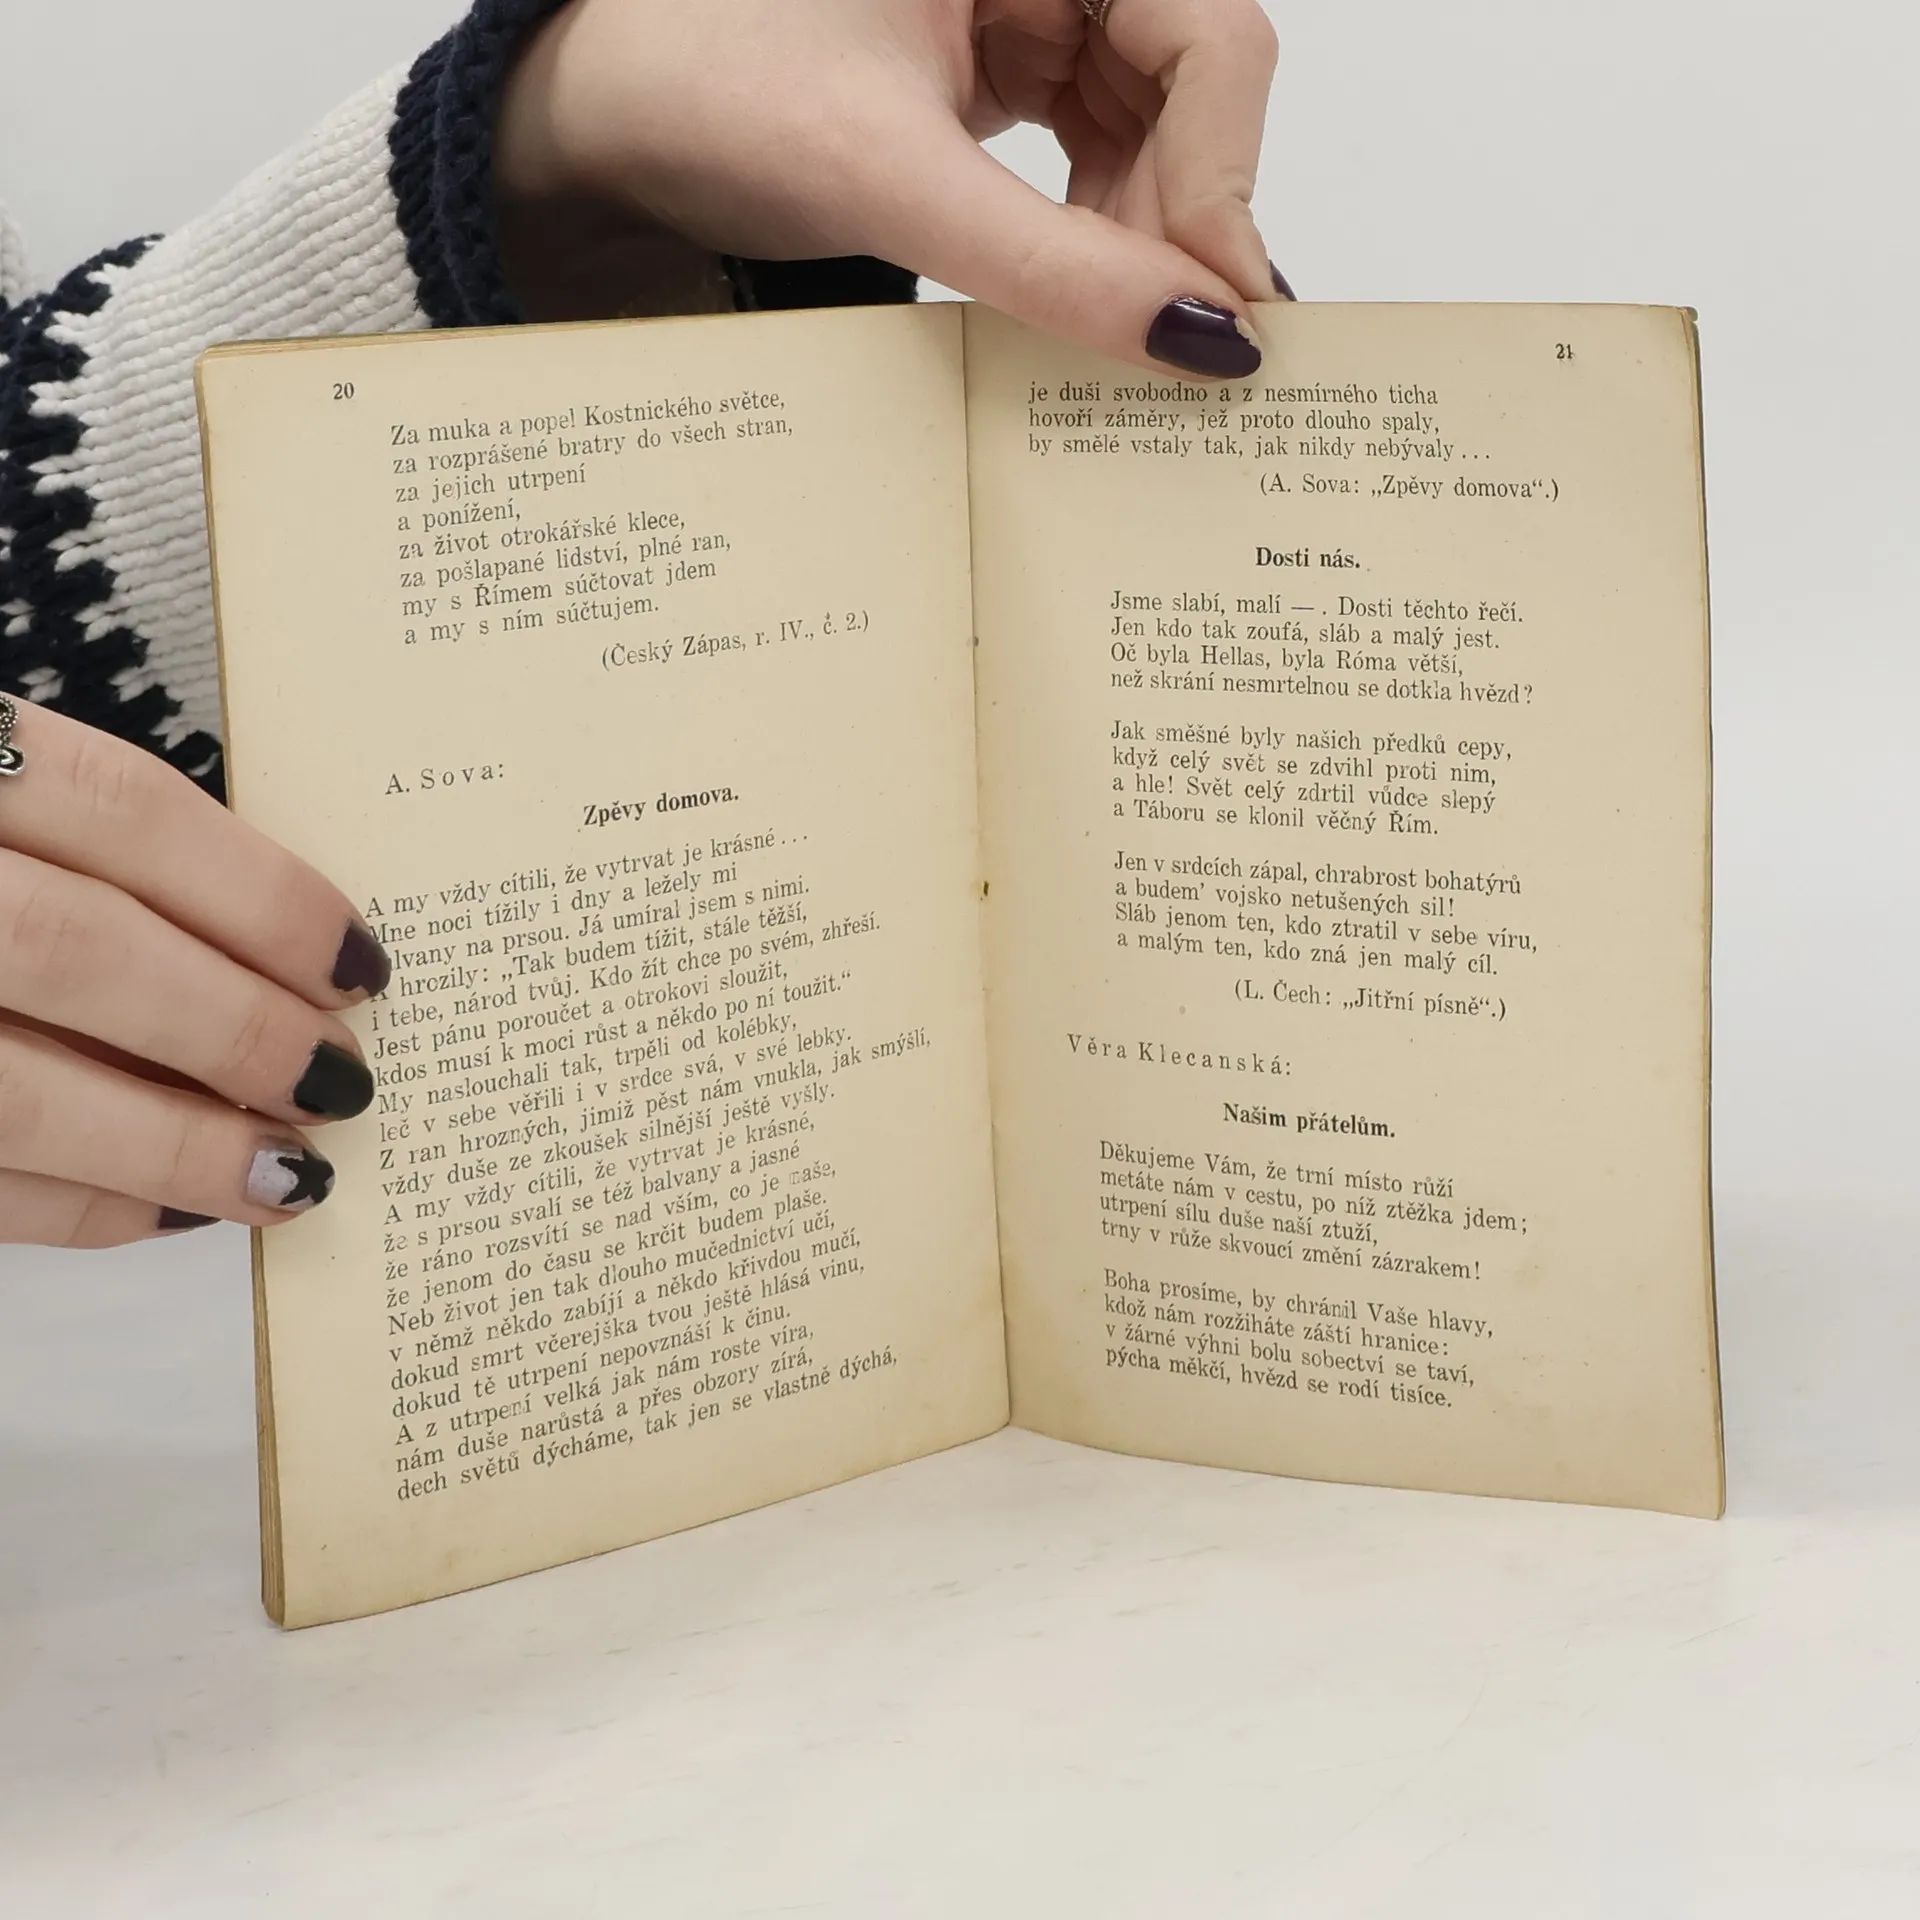 20
Za muka a popel Kostnického světce,
za rozprášené bratry do všech stran,
za jejich utrpení
a ponížení,
za život otrokářské klece,
za pošlapané lidství, plné ran,
my s Římem súčtovat jdem
a my s ním súčtujem.
(Český Zápas, r. IV., č. 2.)
A. Sova:
Zpěvy domova.
A my vždy cítili, že vytrvat je krásné...
Mne noci tížily i dny a ležely mi
na prsou. Já umíral jsem s nimi.
hrozily: „Tak budem tížit, stále těžší,
i tebe, národ tvůj. Kdo žít chce po svém, zhřeší.
Jest pánu poroučet a otrokovi sloužit,
kdos musí k moci růst a někdo po ní toužit.“
My naslouchali tak, trpěli od kolébky,
leč v sebe věřili i v srdce svá, v své lebky.
Z ran hrozných, jimiž pěst nám vnukla, jak smýšlí,
vždy duše ze zkoušek silnější ještě vyšly.
A my vždy cítili, že vytrvat je krásné,
že s prsou svalí se též balvany a jasné
že ráno rozsvítí se nad vším, co je naše,
že jenom do času se krčit budem plaše.
Neb život jen tak dlouho mučednictví učí,
v němž někdo zabíjí a někdo křivdou mučí,
dokud smrt včerejška tvou ještě hlásá vinu,
dokud tě utrpení nepovznáší k činu.
A z utrpení velká jak nám roste víra,
nám duše narůstá a přes obzory zírá,
dech světů dýcháme, tak jen se vlastně dýchá,
21
je duši svobodno a z nesmírného ticha
hovoří záměry, jež proto dlouho spaly,
by smělé vstaly tak, jak nikdy nebývaly...
(A. Sova: „Zpěvy domova“.)
Dosti nás.
Jsme slabí, malí —. Dosti těchto řečí.
Jen kdo tak zoufá, sláb a malý jest.
Oč byla Hellas, byla Róma větší,
než skrání nesmrtelnou se dotkla hvězd?
Jak směšné byly našich předků cepy,
když celý svět se zdvihl proti nim,
a hle! Svět celý zdrtil vůdce slepý
a Táboru se klonil věčný Řím.
Jen v srdcích zápal, chrabrost bohatýrů
a budem’ vojsko netušených sil!
Sláb jenom ten, kdo ztratil v sebe víru,
a malým ten, kdo zná jen malý cíl.
(L. Čech: „Jitřní písně“.)
Věra Klecanská:
Našim přátelům.
Děkujeme Vám, že trní místo růží
metáte nám v cestu, po níž ztěžka jdem;
utrpení sílu duše naší ztuží,
trny v růže skvoucí změní zázrakem!
Boha prosíme, by chránil Vaše hlavy,
kdož nám rozžiháte záští hranice:
v žárné výhni bolu sobectví se taví,
pýcha měkčí, hvězd se rodí tisíce.